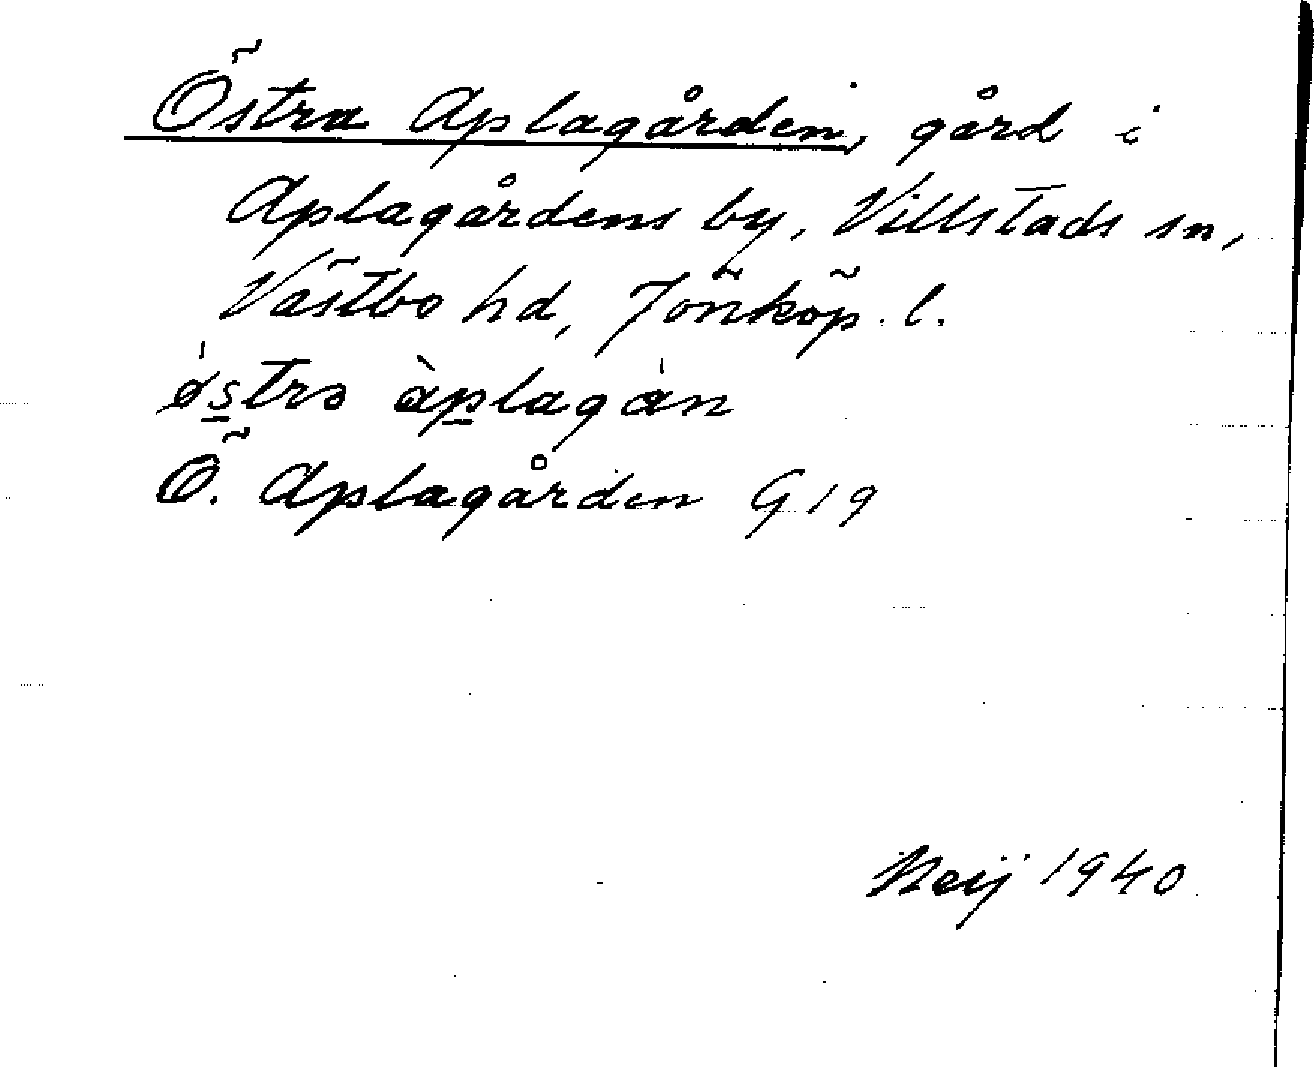 Östra Aplagården, gård i
Aplagårdens by, Villstads sn,
Västbo hd, Jönköp. l.
østrə àplagån
Ö. Aplagården G 19
Neij 1940